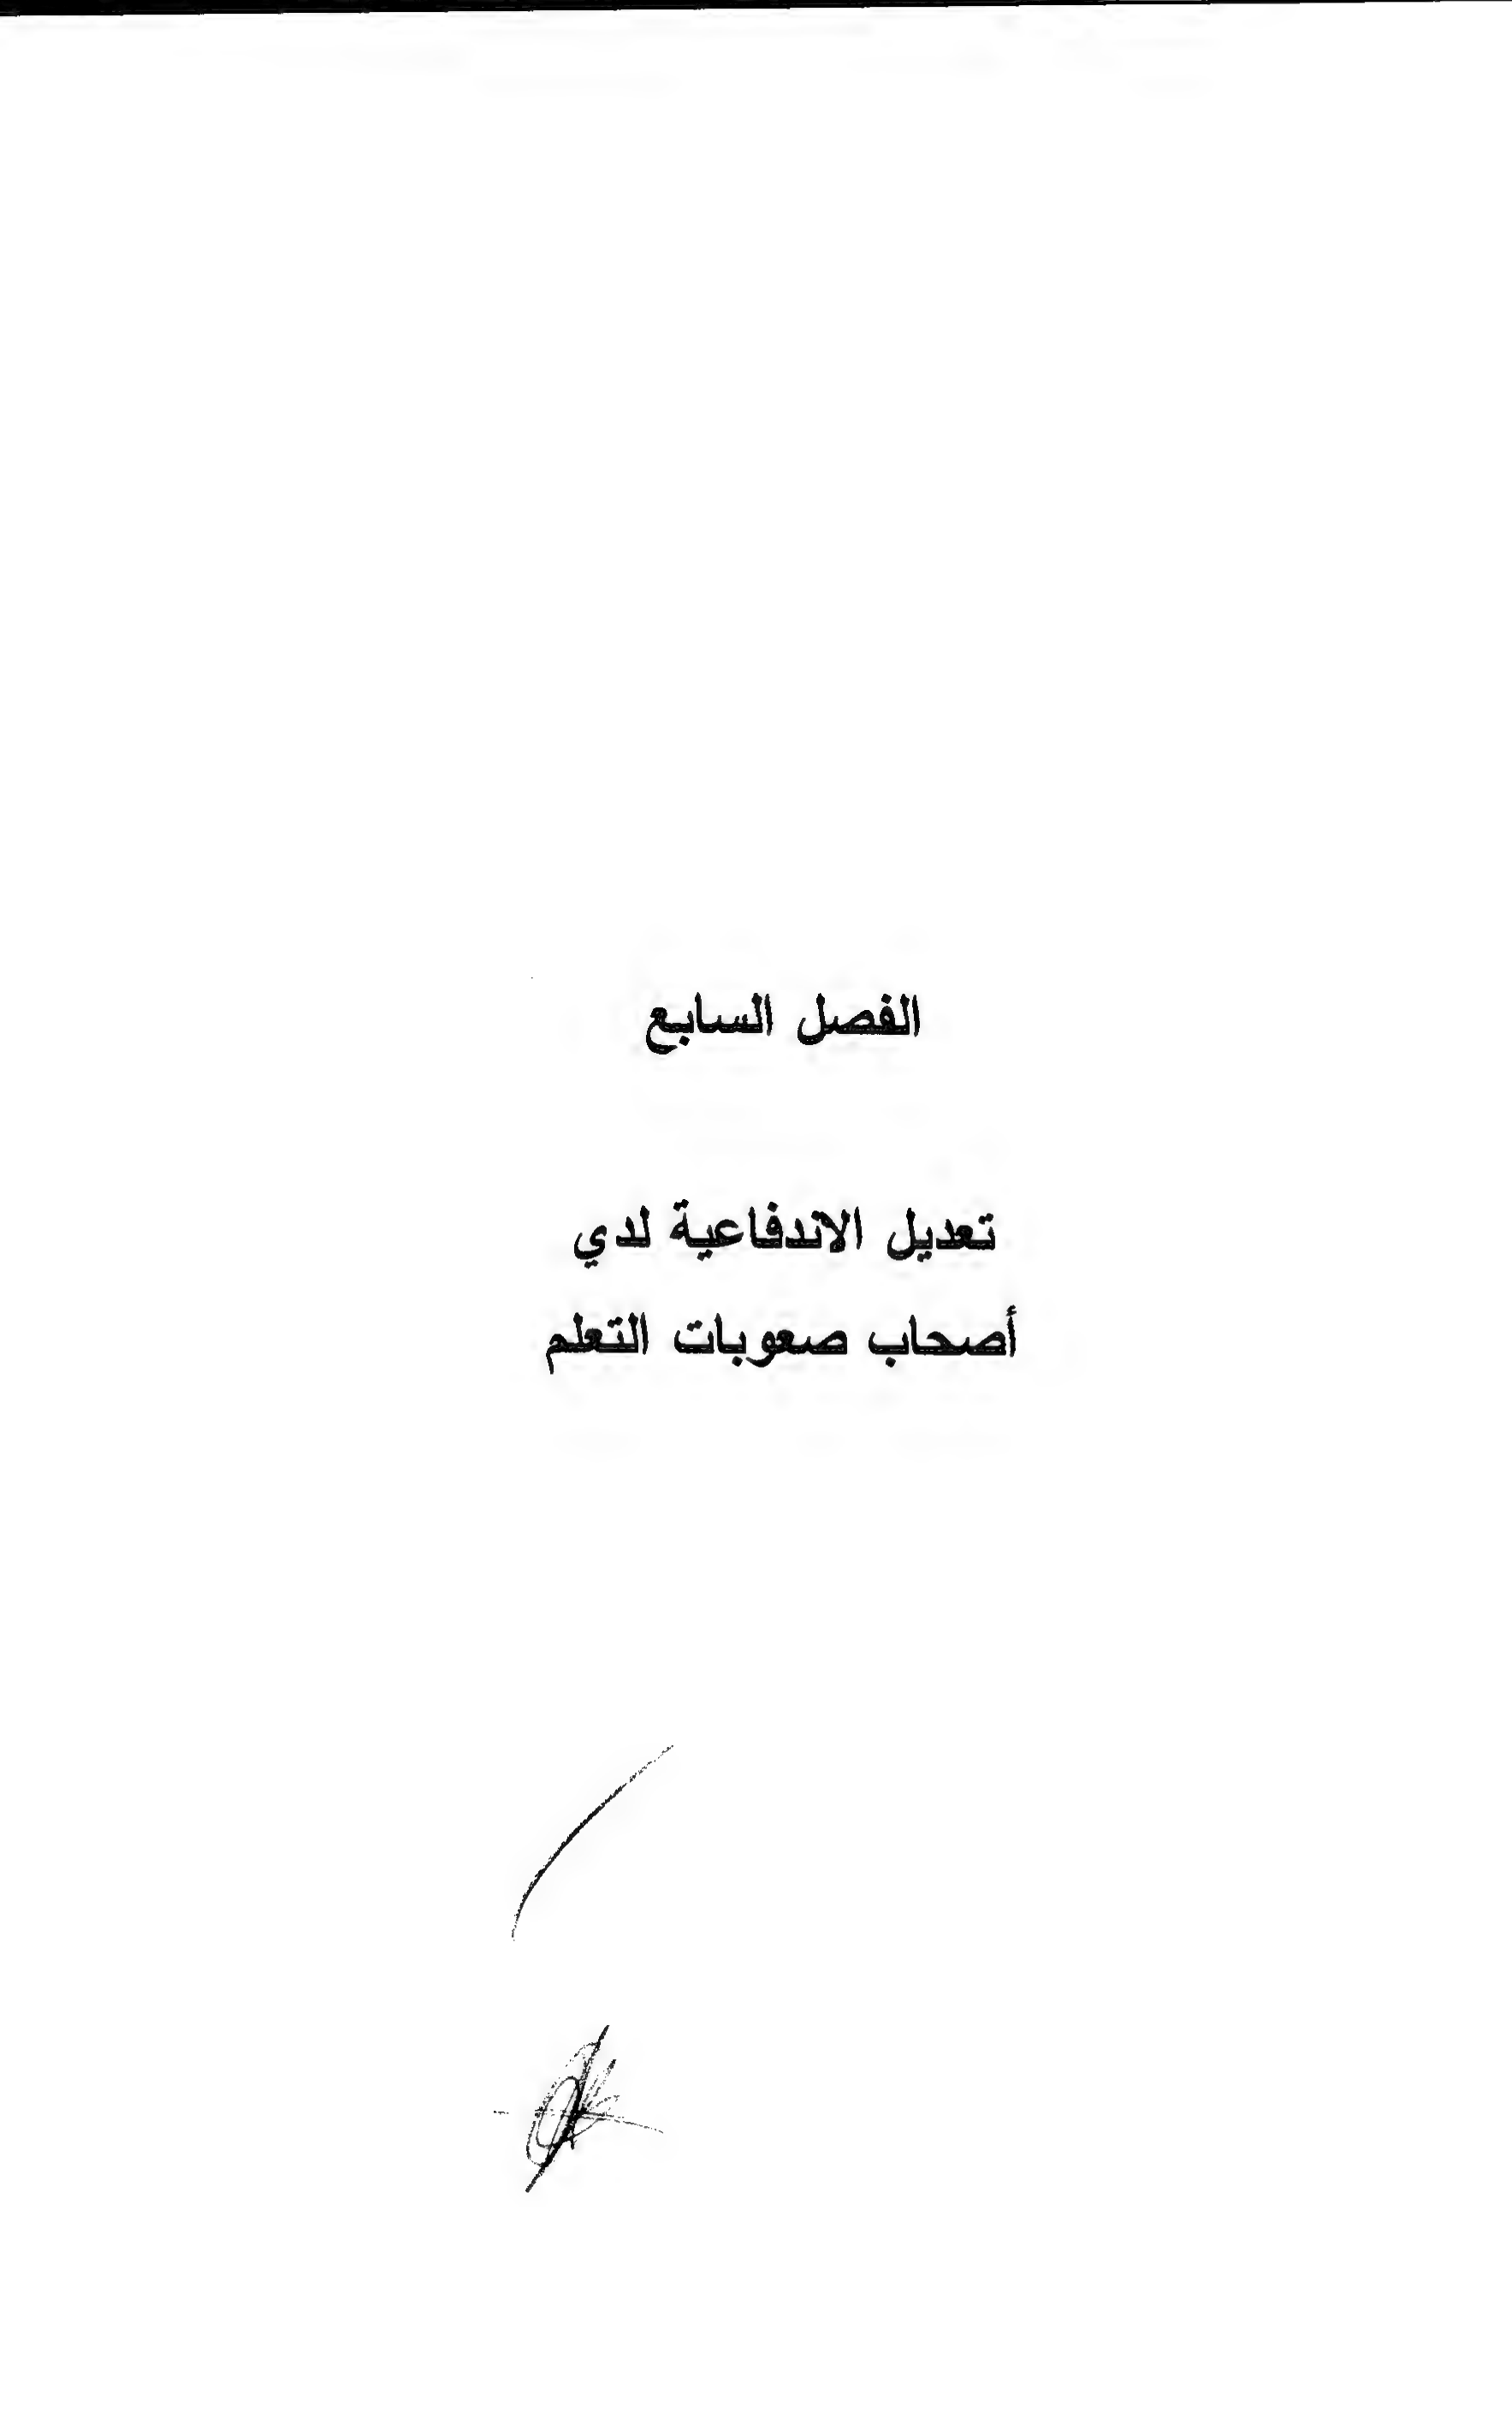 الفصل السابع
تعديل الاندفاعية لدي
أصحاب صعوبات التعلم